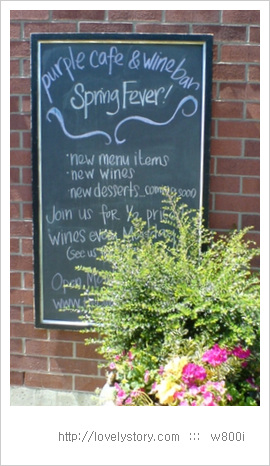 purple cafe & wine bar
Spring Fever!
·new menu items
·new wines
·new desserts_coming soon
Join us for ½
wines
(see us
Open
http://lovelystory.com ::: w800i